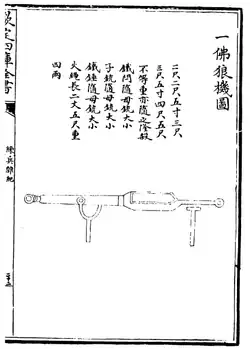 一佛狼機圖
二尺二尺五寸三尺
三尺五寸四尺五尺
不等重亦隨之隆殺
鐵閂隨母銃大小
子銃隨母銃大小
鐵錘隨母銃大小
火繩長二丈五尺重
四兩
欽定四庫全書
練兵雜紀